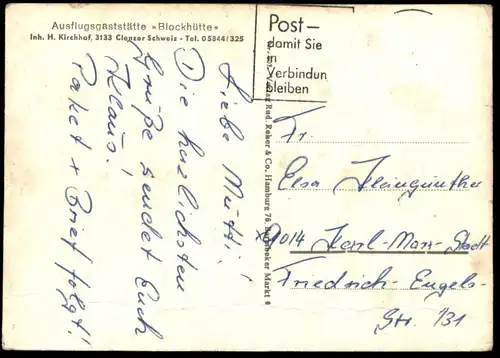 Ausflugsgaststätte »Blockhütte«
Inh. H. Kirchhof, 3133 Clenzer Schweiz - Tel. 05844/325
Post—
damit Sie
in
Verbindun
bleiben
Liebe Mutti!
Die herzlichsten
Grüße sendet Euch
Klaus!
Paket + Brief folgt!
Verlag Rud. Reker & Co., Hamburg 76, Barmbeker Markt 9
Fr.
Elsa Kleingünther
9014 Karl-Marx-Stadt
Friedrich-Engels-
Str. 131